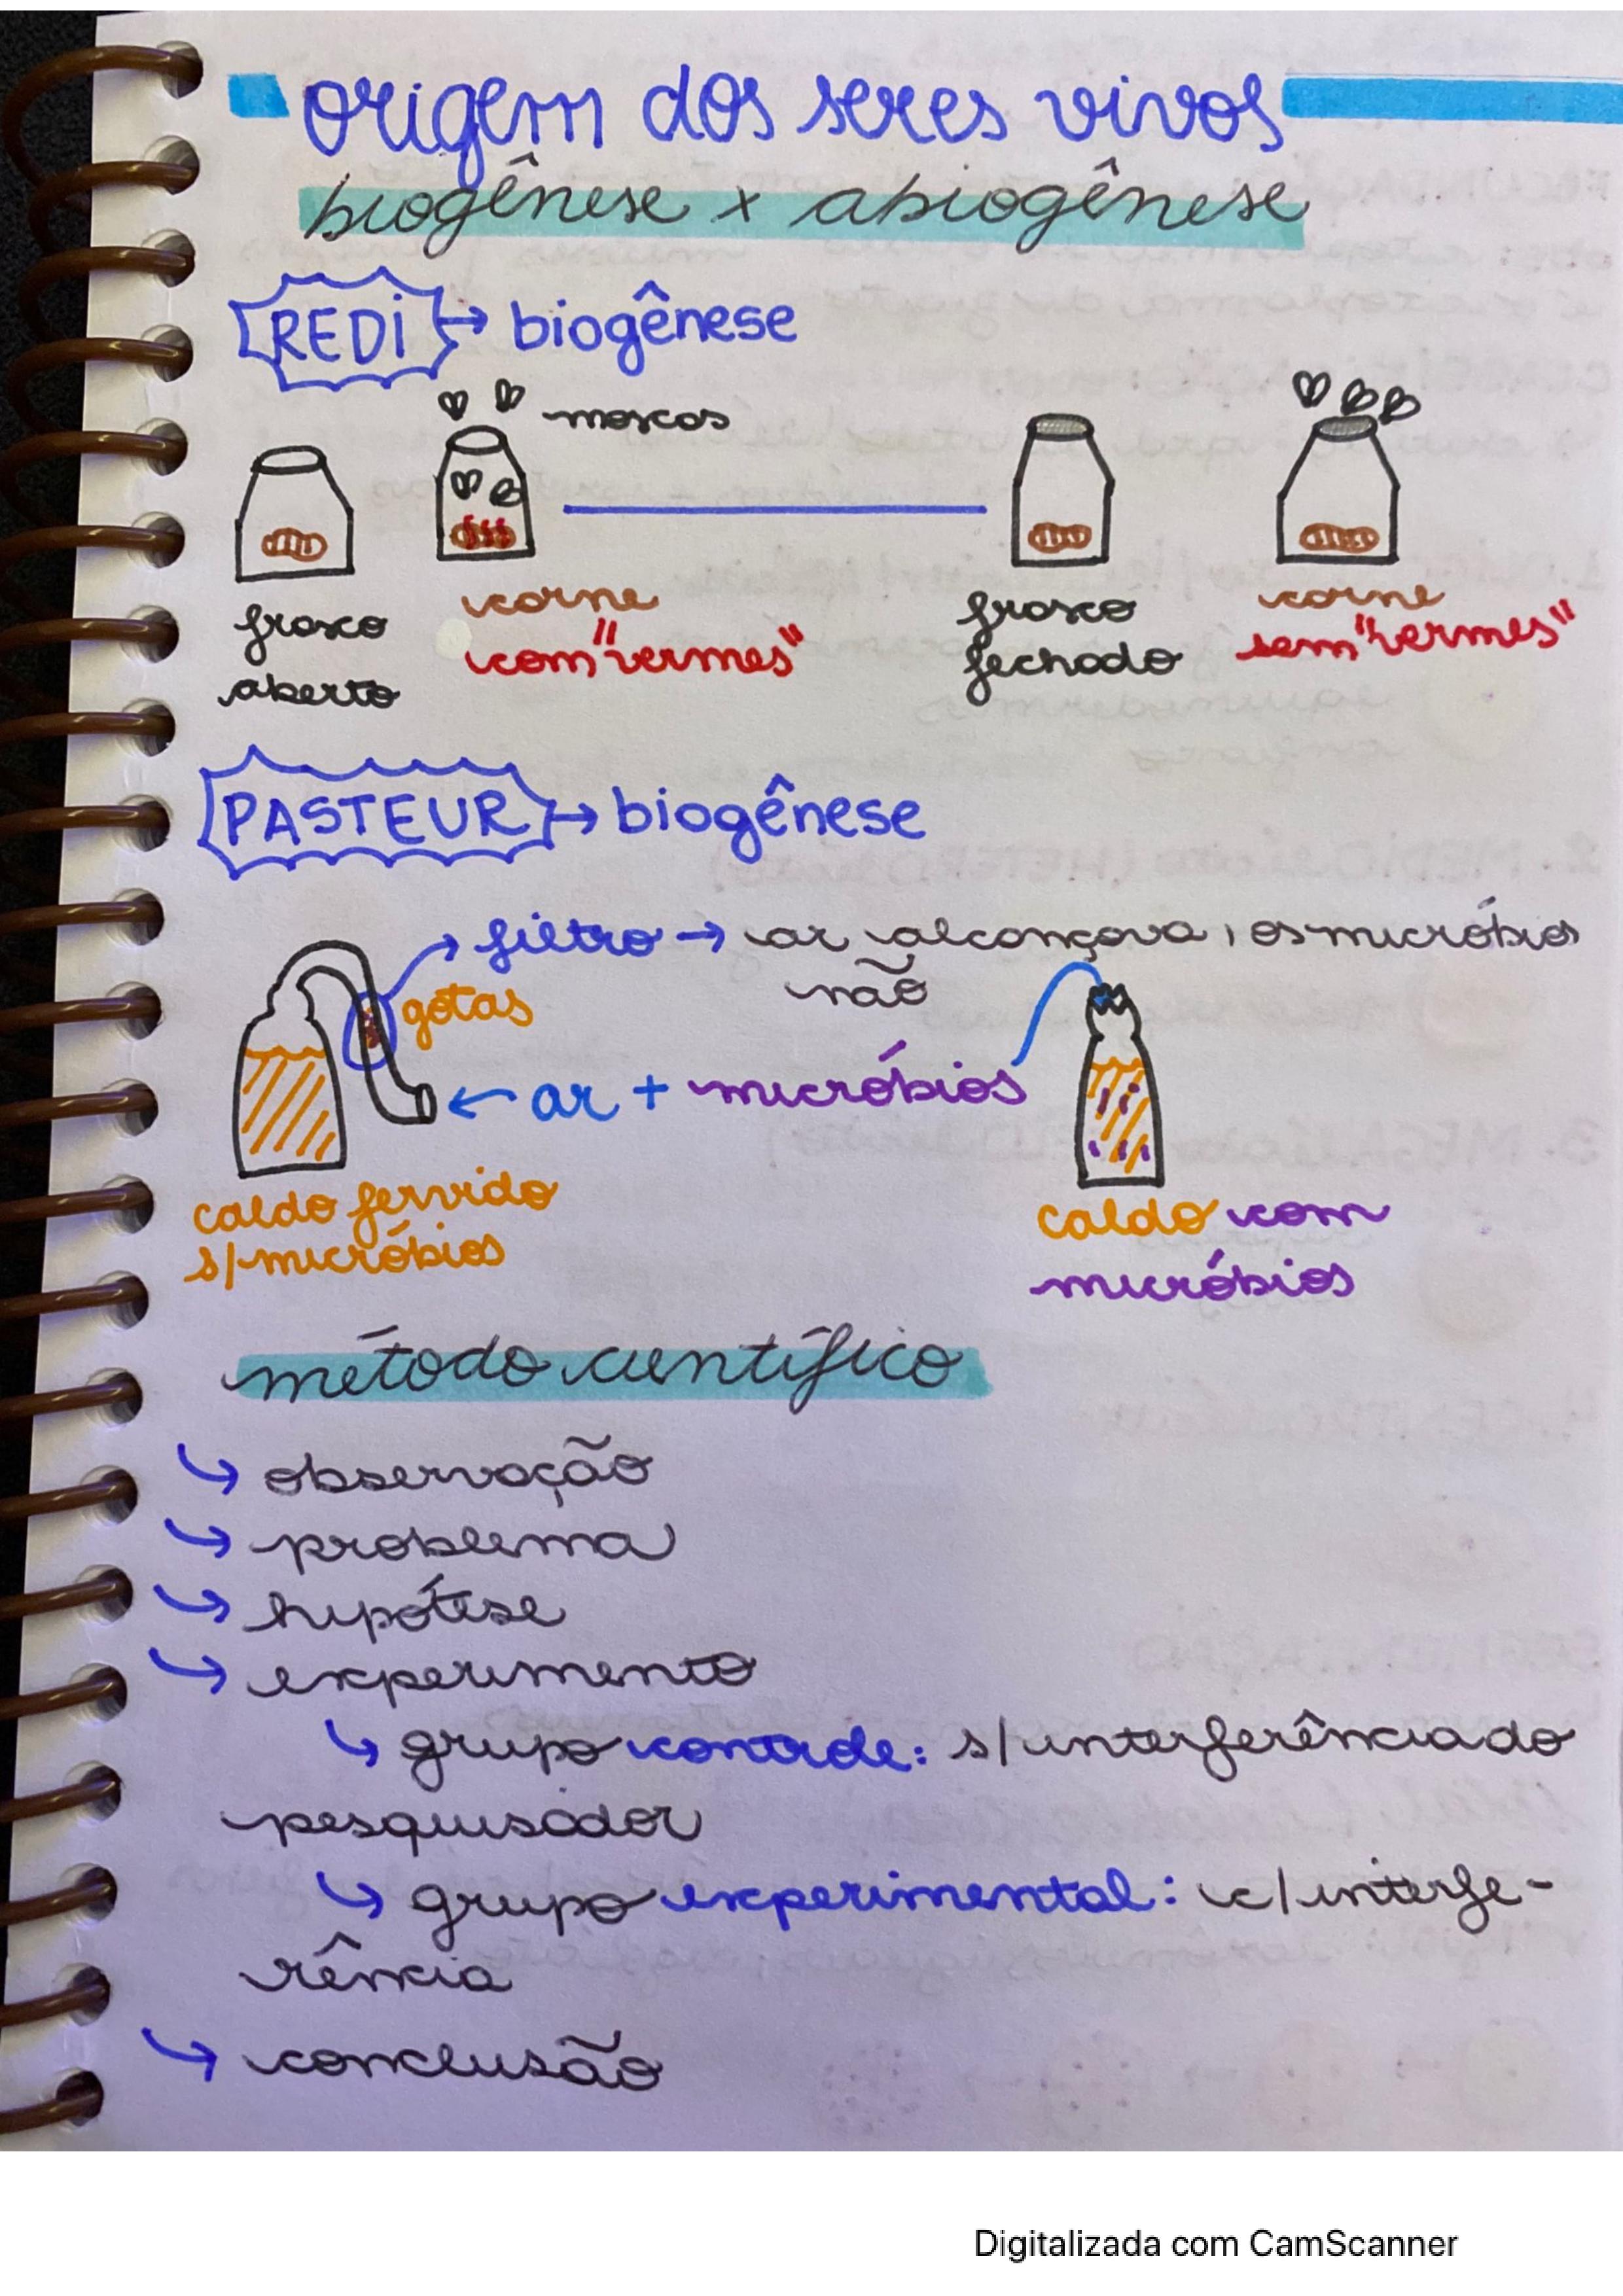 origem dos seres vivos
biogênese x abiogênese
REDI → biogênese
moscas
frasco
aberto
carne
com "vermes"
frasco
fechado
carne
sem "vermes"
PASTEUR → biogênese
filtro → ar alcançava, os micróbios
não
gotas
← ar + micróbios
caldo fervido
s/ micróbios
caldo com
micróbios
método científico
↳ observação
↳ problema
↳ hipótese
↳ experimento
↳ grupo controle: s/ interferência do
pesquisador
↳ grupo experimental: c/ interfe-
rência
↳ conclusão
Digitalizada com CamScanner